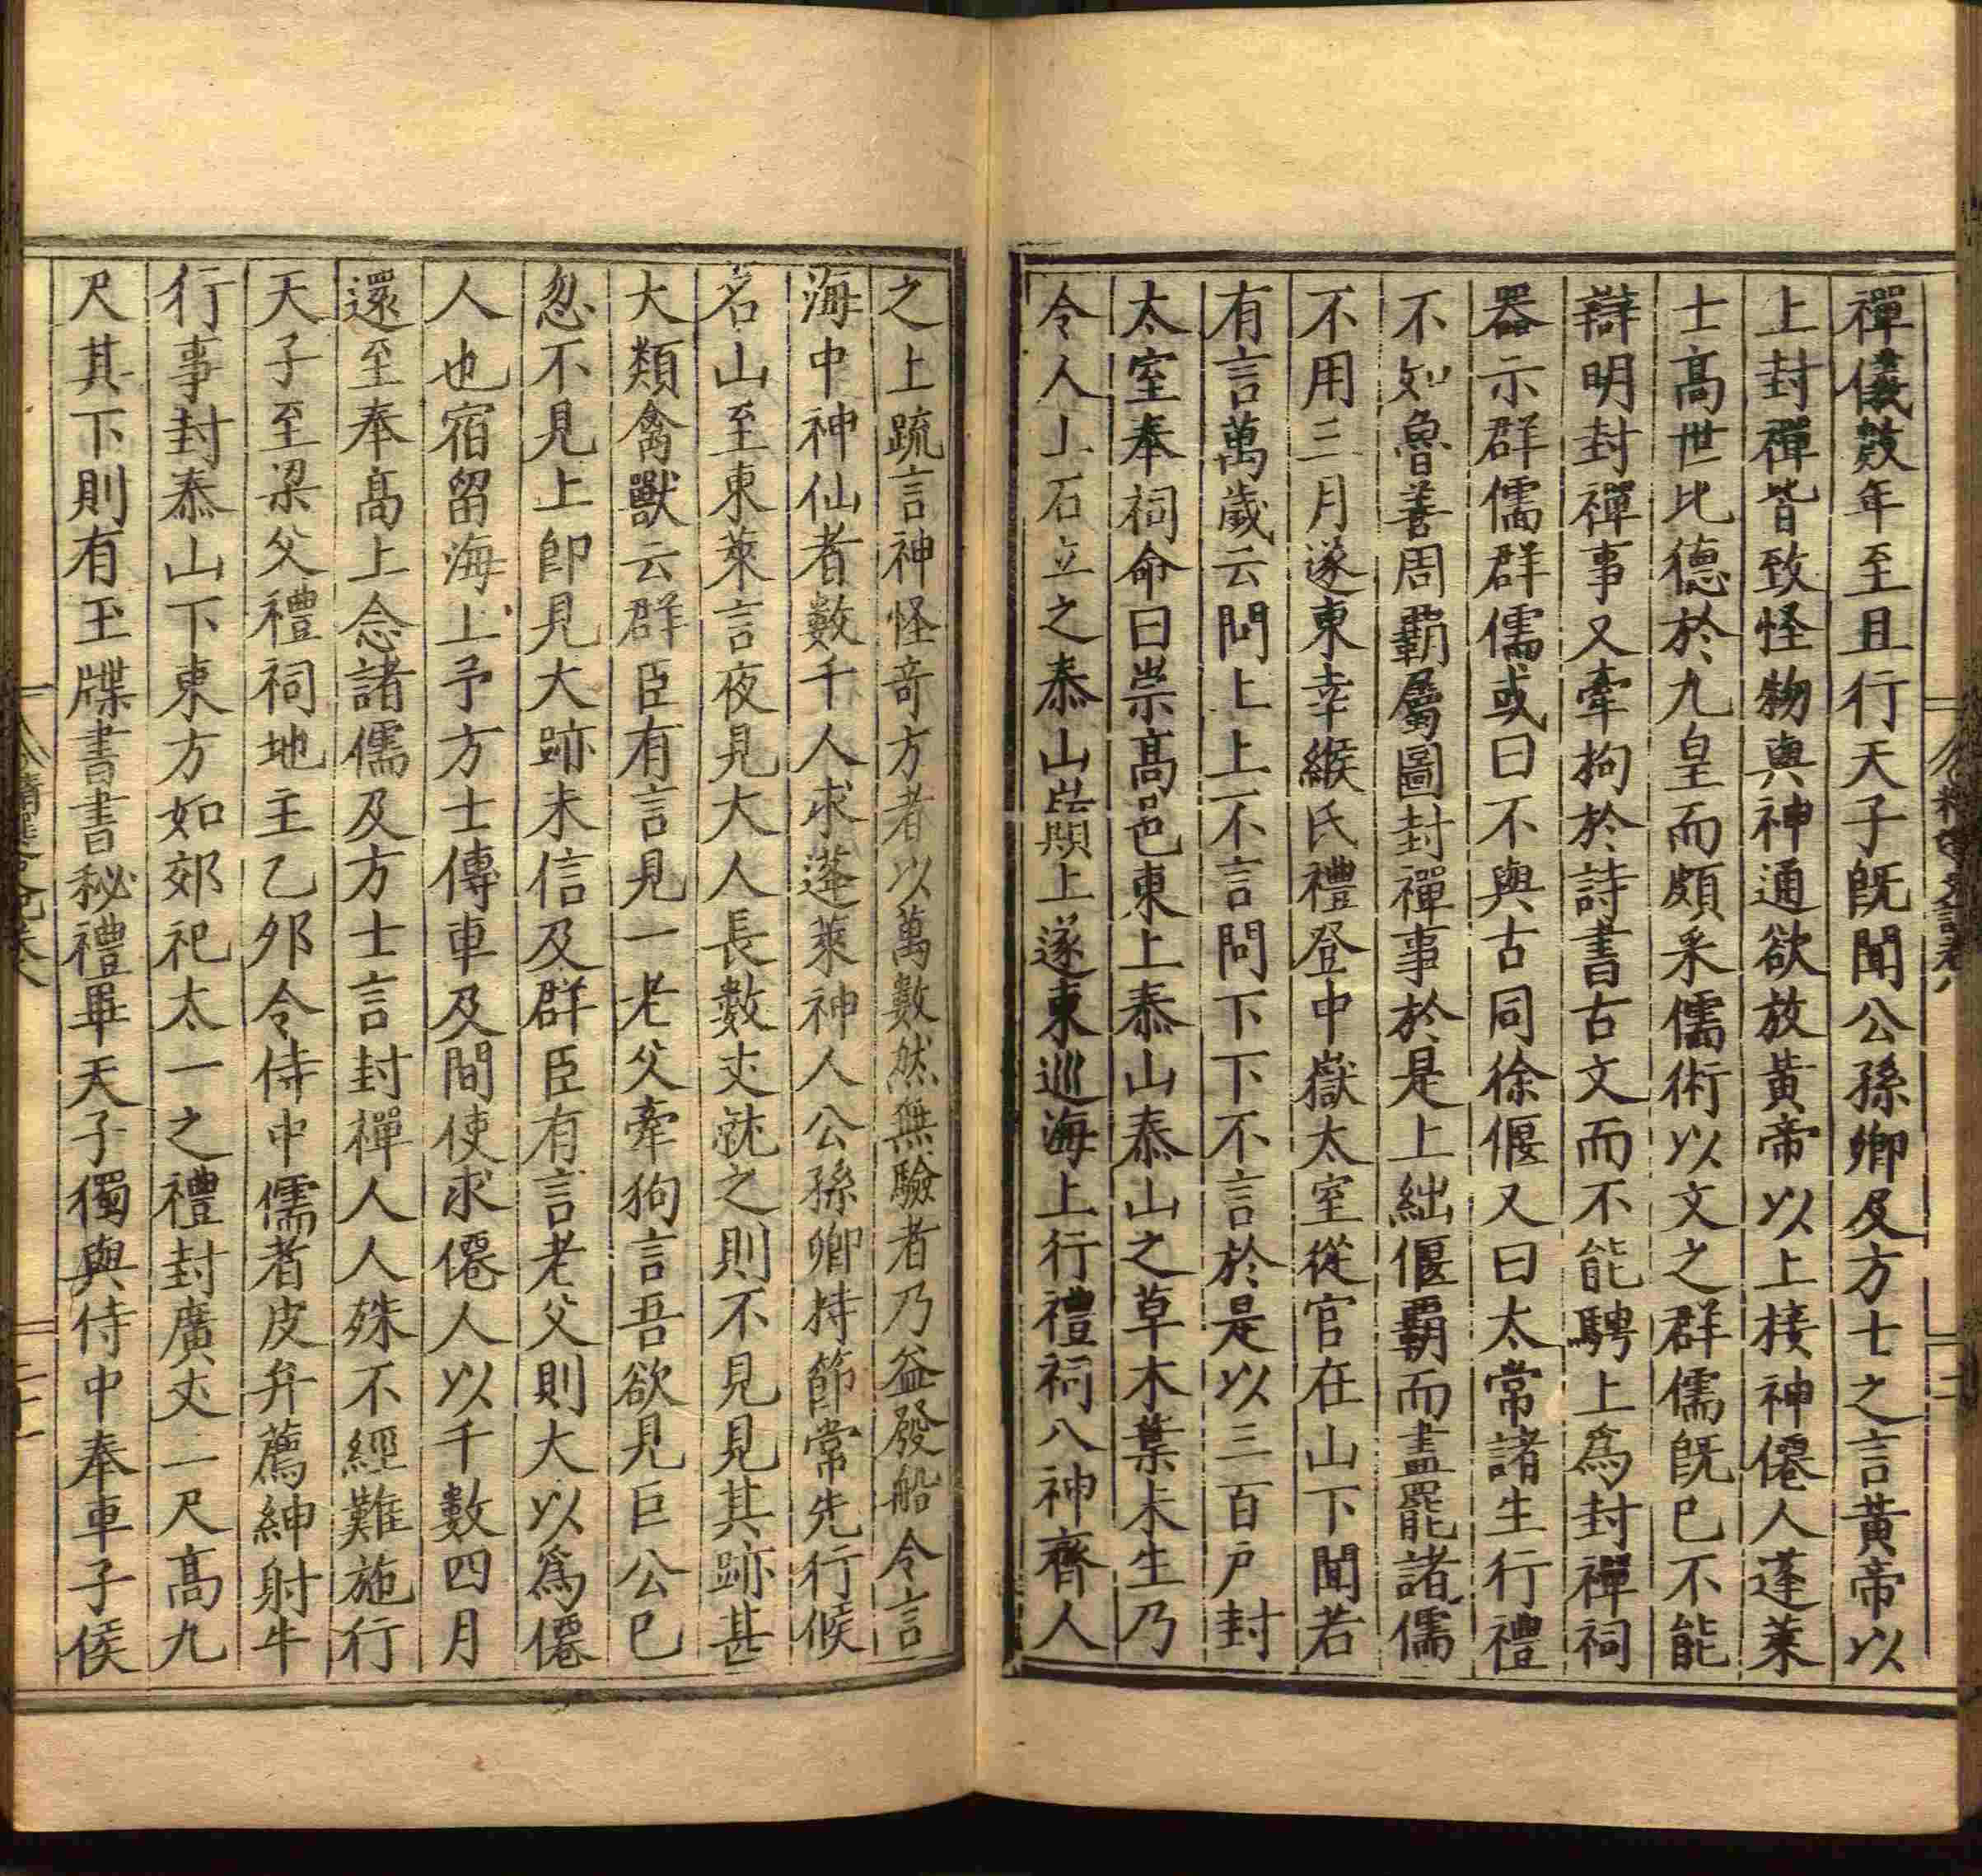 禪儀數年至且行天子既聞公孫卿及方士之言黃帝以
上封禪皆致怪物與神通欲放黃帝以上接神僊人蓬萊
士高世比德於九皇而頗采儒術以文之群儒既已不能
辯明封禪事又牽拘於詩書古文而不能騁上爲封禪祠
器示群儒群儒或曰不與古同徐偃又曰太常諸生行禮
不如魯善周霸屬圖封禪事於是上絀偃霸而盡罷諸儒
不用三月遂東幸緱氏禮登中嶽太室從官在山下聞若
有言萬歲云問上上不言問下下不言於是以三百戶封
太室奉祠命曰崇高邑東上泰山泰山之草木葉未生乃
令人上石立之泰山巔上遂東巡海上行禮祠八神齊人
之上疏言神怪奇方者以萬數然無驗者乃益發船令言
海中神仙者數千人求蓬萊神人公孫卿持節常先行候
名山至東萊言夜見大人長數丈就之則不見見其跡甚
大類禽獸云群臣有言見一老父牽狗言吾欲見巨公已
忽不見上卽見大跡未信及群臣有言老父則大以爲僊
人也宿留海上予方士傳車及間使求僊人以千數四月
還至奉高上念諸儒及方士言封禪人人殊不經難施行
天子至梁父禮祠地主乙卯令侍中儒者皮弁薦紳射牛
行事封泰山下東方如郊祀太一之禮封廣丈二尺高九
尺其下則有玉牒書書秘禮畢天子獨與侍中奉車子侯